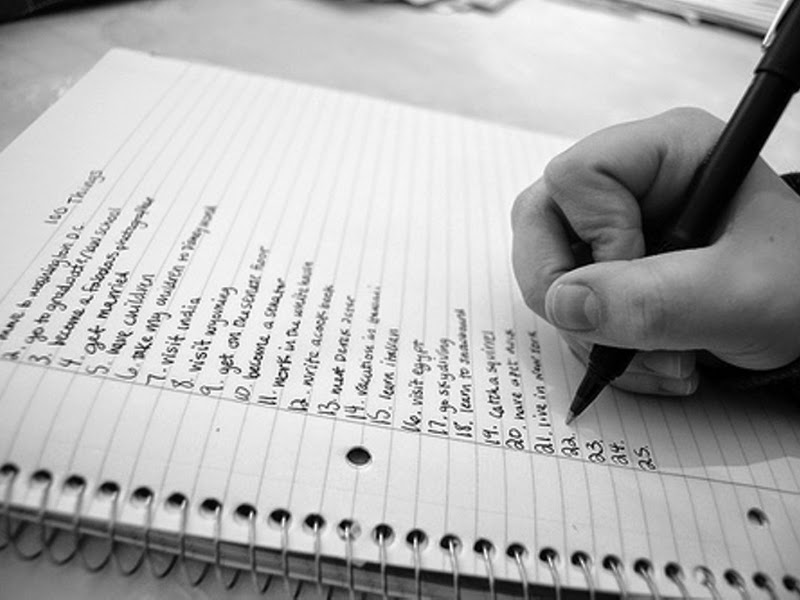 100 Things
move to washington D.C
2. go to graduate/law school
3. become a fabulous photographer
4. get married
5. have children
6. take my children to disney world
7. visit India
8. visit wyoming
9. get on the senate floor
10. become a senator
11. work in the white house
12. write a cook book
13. meet Derek Jeter
14. vacation in
15. learn italian
16. visit egypt
17. go skydiving
18. learn to snowboard
19. catch a squirrel
20. have a pet
21. live in new york
22.
23.
24.
25.